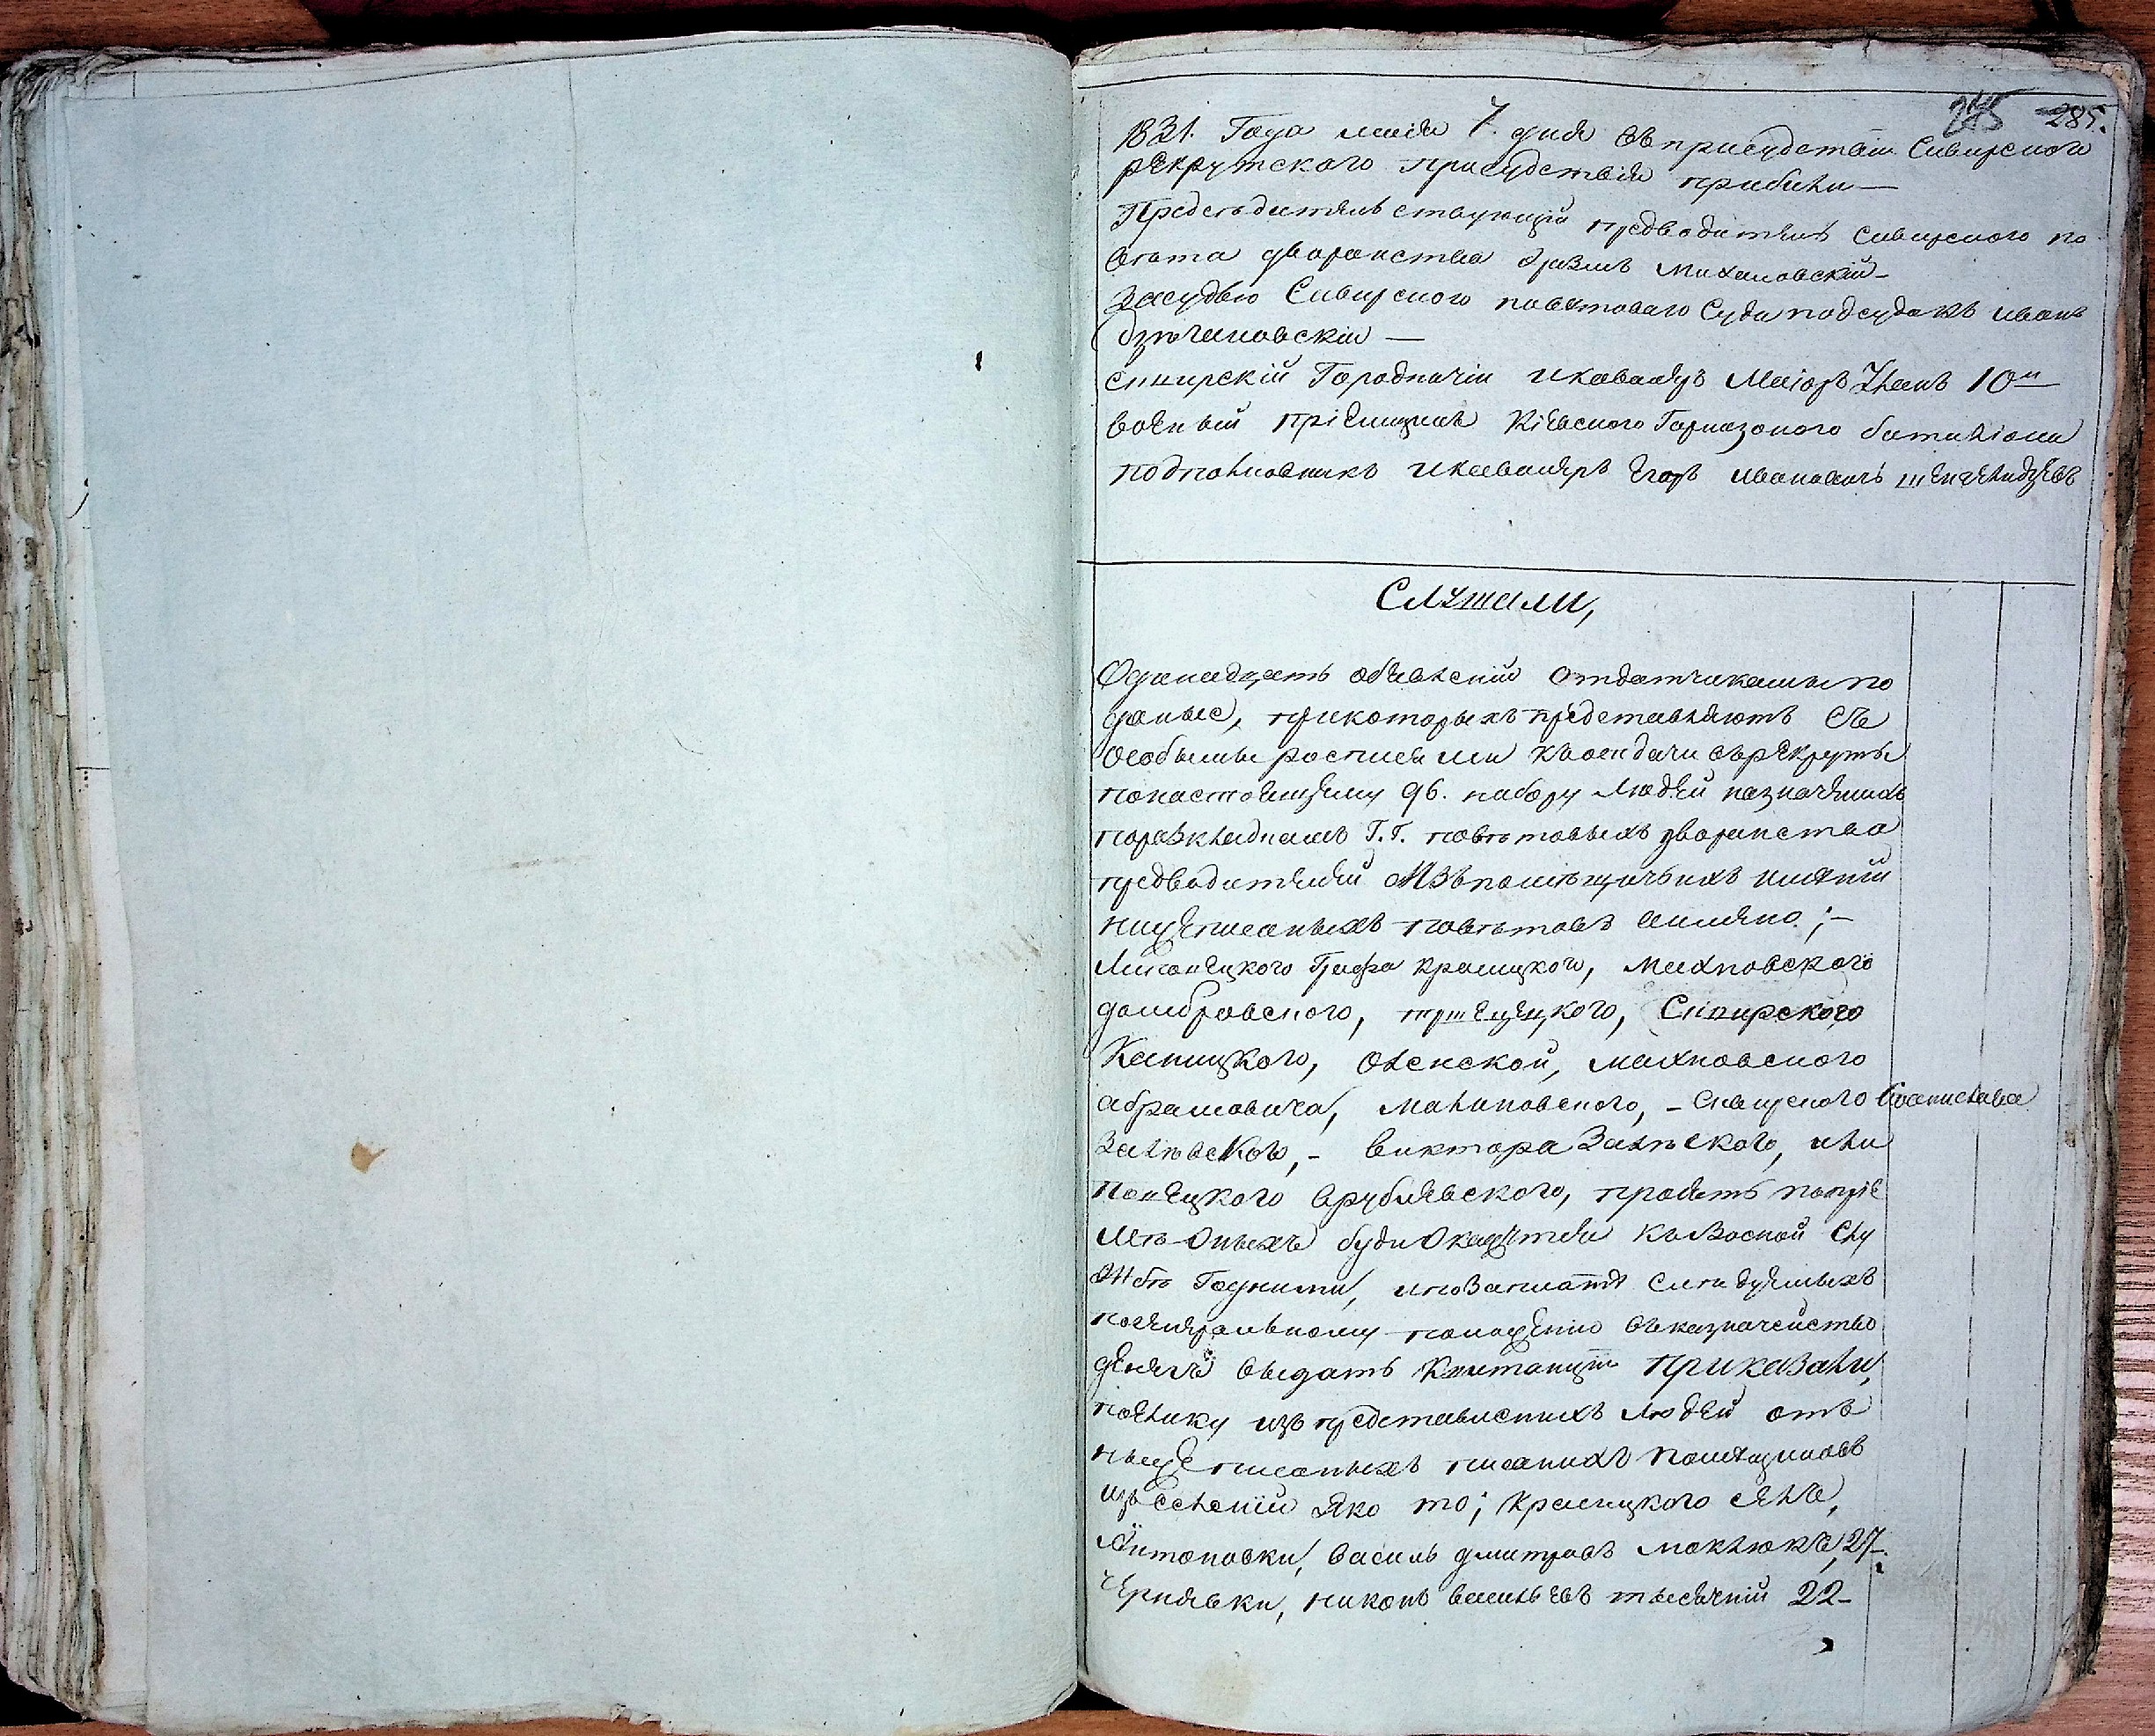 285.
1831. Года маия 7. дня въ присудствіи Сквирского
рекрутского присудствія прибили—
Председательствующій предводитель Сквирского по
вѣта дворянства Михаловскій—
Засудью Сквирского повѣтоваго Суда подсудокъ иванъ
сквирскій Городничій и кавалеръ Маіоръ 10й
военный пріемщикъ Кіевского Гарнизоного баталіона
подполковникъ и кавалеръ Егоръ ивановичъ
Слушали,
Одинадцать обявленій отдатчиками по
даные, при которыхъ представляютъ съ
особыми росписями къ отдачи въ рекруты
по настоящему 96. набору людей назначеныхъ
по раскладкамъ Г.Г. повѣтовыхъ дворянства
предводителей изъ помѣщичьихъ имѣній
нижеписаныхъ повѣтовъ имяно;—
Липовецкого Графа Красицкого, Махновского
домбровского, Сквирского
Капицкого, Махновского
абрамовича, Малиновского, – Сквирского Станислава
Залѣвского, – Виктора Залѣского, или
повецкого Врублевского, просять по пріе
мѣ оныхъ буди окажутся къ Воєной Слу
жбѣ Годними, и по Заплатѣ слѣдуемыхъ
по генеральному положенію въ казначейство
денегъ выдать Квитанціи Приказали,
поелику изъ представленихъ людей отъ
нижеписаныхъ помѣщиковъ
изъ селеній яко то; Красицкого селъ,
Антоновки, василь дмитровъ моклюкъ, 27.
Чернявки, никонъ васильевъ тысячній 22–